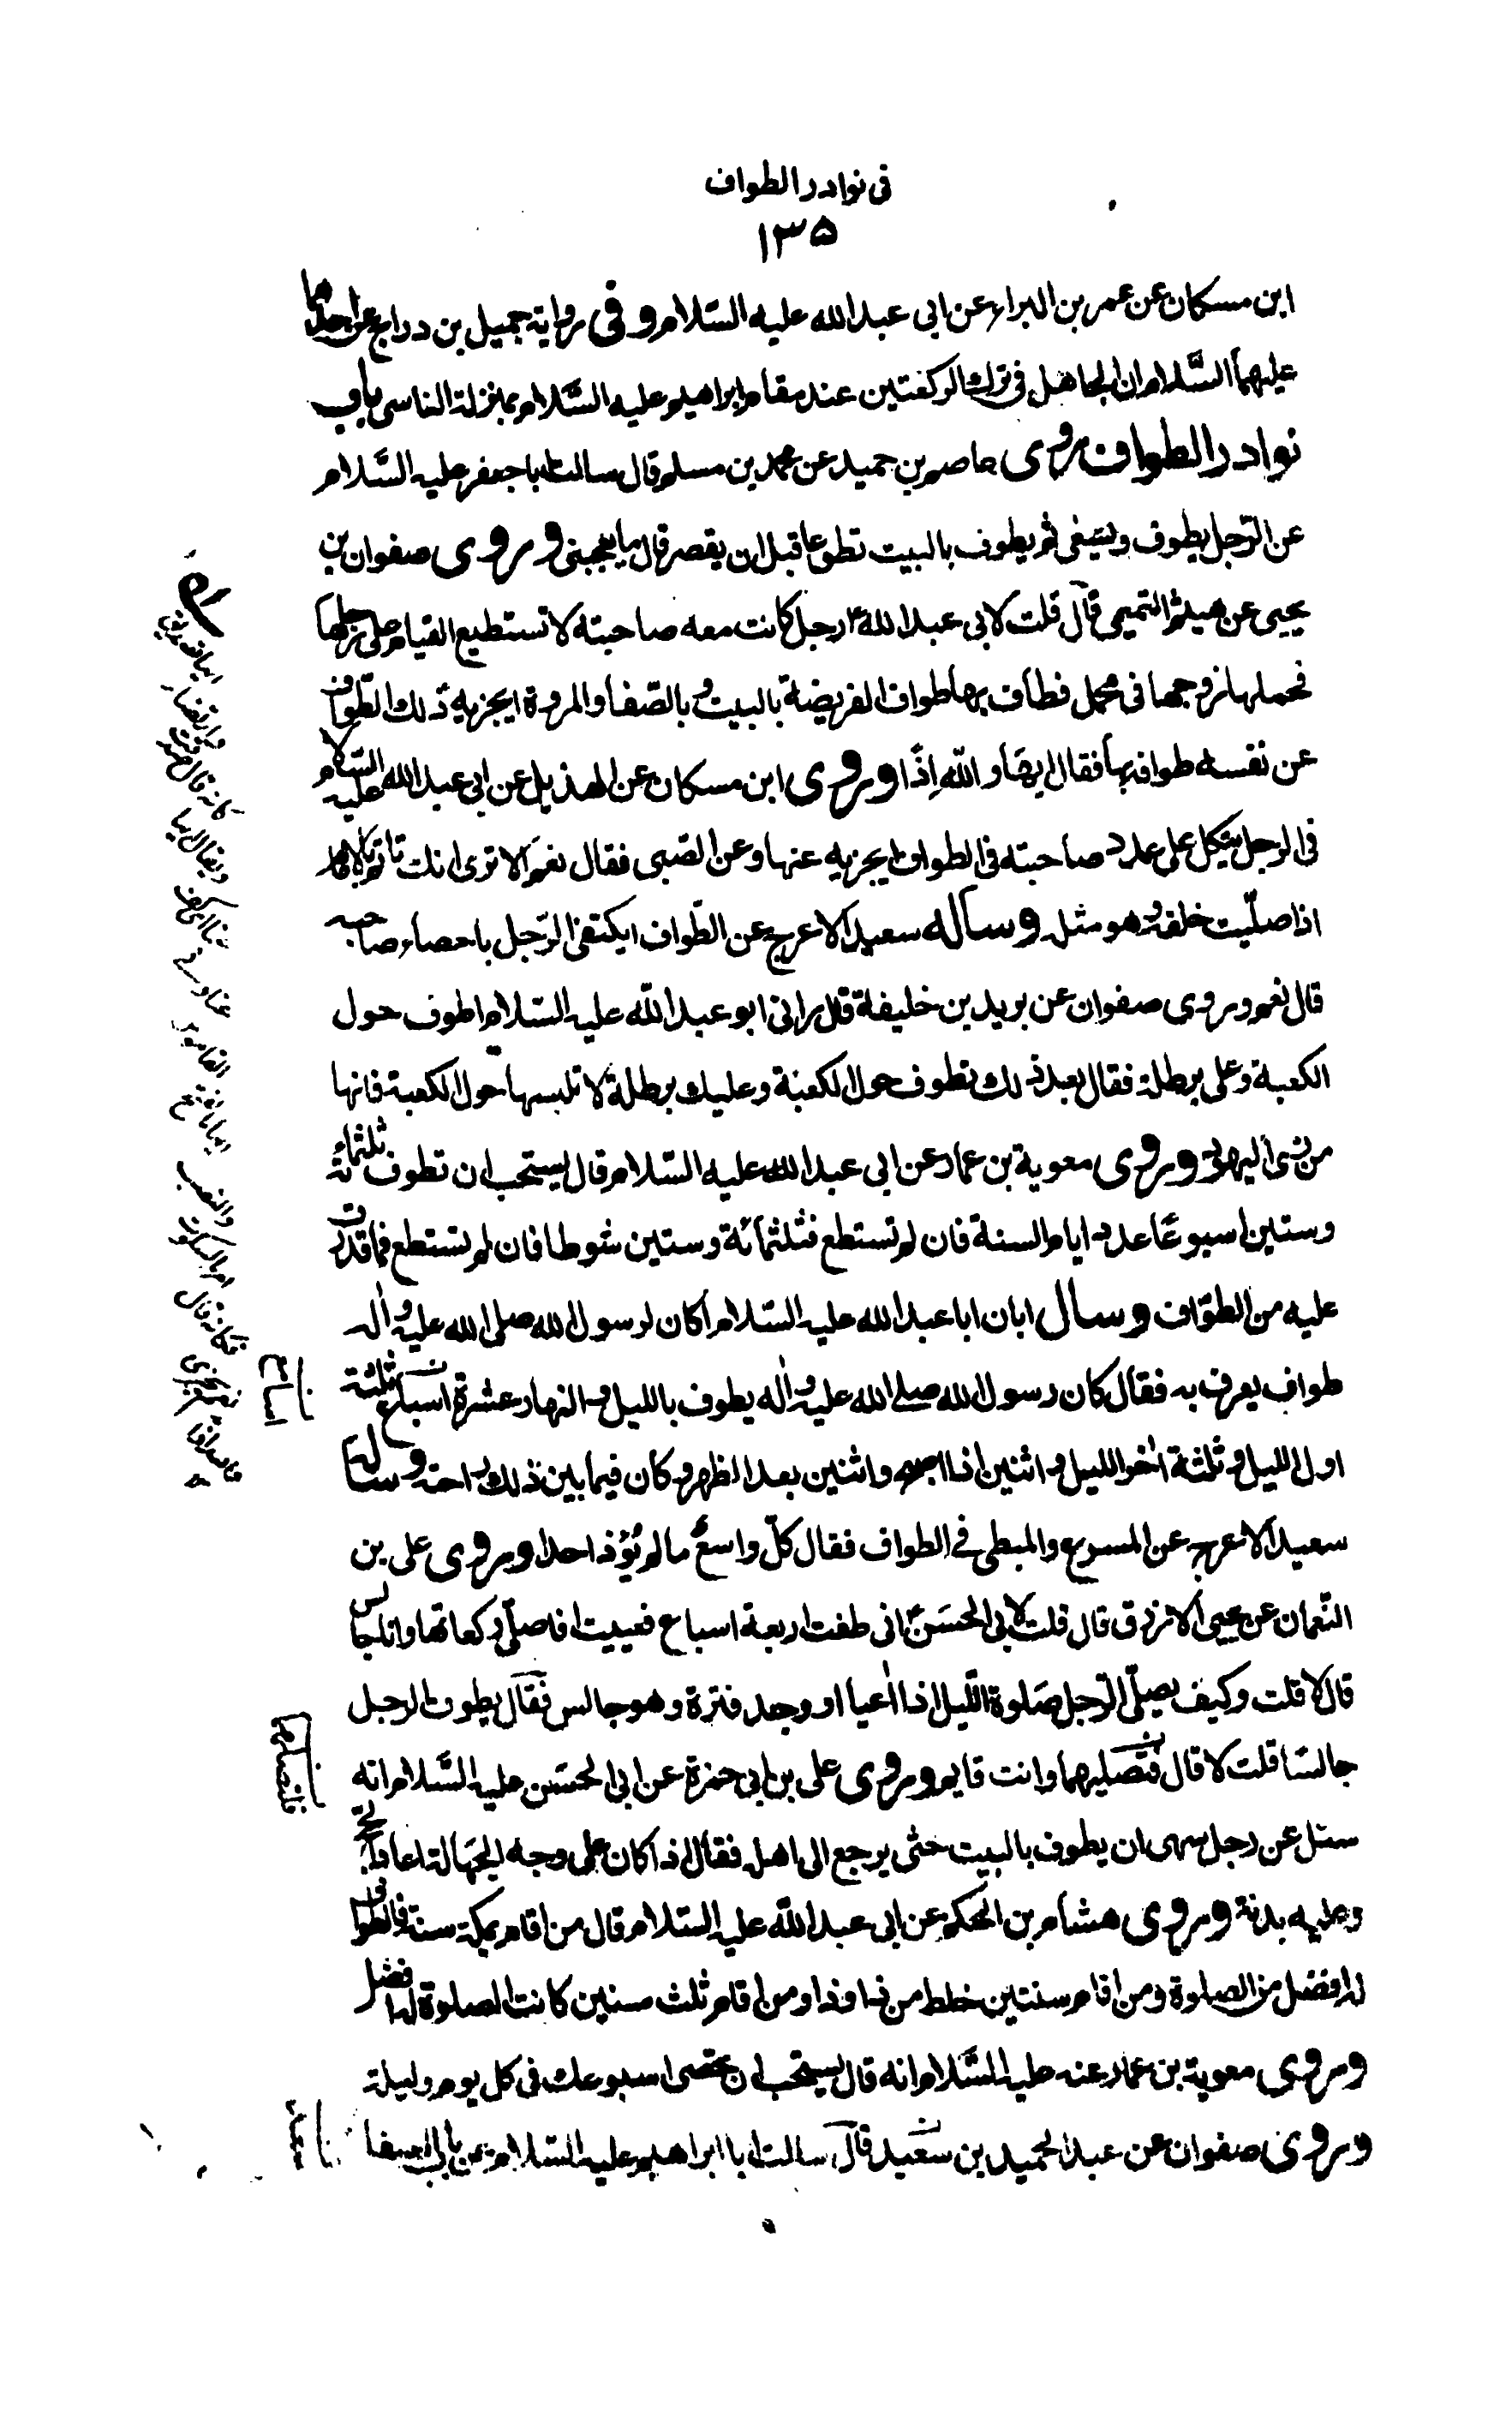 فى نوادر الطواف
١٣۵
ابن مسكان عن عمر بن البراء عن ابى عبد الله عليه السّلام وفى رواية جميل بن دراج عن احدهما
عليهما السَّلام ان الجاهل فى ترك الركعتين عند مقام ابراهيم عليه السَّلام بمنزلة الناسى باب
نوادر الطواف روى عاصم بن حميد عن محمد بن مسلم قال سالت ابا جعفر عليه السَّلام
عن الرّجل يطوف ويسعى ثم يطوف بالبيت تطوعا قبل ان يقصر قال ما يعجبنى وروى صفوان بن
يحيى عن هيثم التميمى قال قلت لابى عبد الله ؑ رجل كانت معه صاحبته لا تستطيع القيام على رجلها
فحملها زوجها فى محمل فطاف بها طواف الفريضة بالبيت و بالصّفا والمروة ايجزيه ذلك الطّواف
عن نفسه طوافه بها فقال ايها والله اذًا وروى ابن مسكان عن الهذيل عن ابى عبد الله عليه السّلام
فى الرجل يتكل على عدد صاحبته فى الطواف ايجزيه عنها وعن الصّبى فقال نعم الا ترى انك تاتم بالامام
اذا صلّيت خلفه وهو مثله وساله سعيد الاعرج عن الطّواف ايكتفى الرّجل باحصاء صاحبه
قال نعم وروى صفوان عن يزيد بن خليفة قال رانى ابو عبد اللّه عليه السّلام اطوف حول
الكعبة وعلى برطلة فقال بعد ذلك تطوف حول الكعبة وعليك برطلة لا تلبسها حول الكعبة فانها
من زى اليهود وروى معوية بن عمار عن ابى عبد الله عليه السّلام قال يستحب ان تطوف ثلثمائة
وستين اسبوعًا عدد ايام السنة فان لم تستطع فثلثمائة وستين شوطا فان لم تستطع فما قدرت
عليه من الطوّاف وسال ابان ابا عبد الله عليه السّلام اكان لرسول الله صلى الله عليه واله
طواف يعرف به فقال كان رسول الله صلى الله عليه واله يطوف بالليل والنهار عشرة اسباع ثلثة
اول الليل وثلثة اخر الليل واثنين اذا اصبح واثنين بعد الظهر وكان فيما بين ذلك راحته وساله
سعيد الاعرج عن المسرع والمبطى فى الطواف فقال كلّ واسعٌ ما لم يُؤذ احدا وروى على بن
النّعمان عن يحيى الازرق قال قلت لابى الحسَن ؑ انى طفت اربعة اسباع فعييت افاصلّى ركعاتها وانا جالس
قال لا قلت وكيف يصلّى الرّجل صَلوة اللّيل اذا اعيا او وجد فترة وهو جالس فقال يطوف الرجل
جالسًا قلت لا قال فتصليهما وانت قايم وروى على بن ابى حمزة عن ابى الحسَن عليه السَّلام انه
سئل عن رجل سهى ان يطوف بالبيت حتى يرجع الى اهله فقال اذا كان على وجه الجهَالة اعاد الحج
وعليه بدنة وروى هشام بن الحكم عن ابى عبد الله عليه السّلام قال من اقام بمكة سنة فالطواف
له افضل من الصلوة ومن اقام سنتين خلط من ذا وذا ومن اقام ثلث سنين كانت الصلوة له افضل
وروى معوية بن عمار عنه عليه السَّلام انه قال يستحب ان يحصى اسبوعك فى كل يوم وليلة
وروى صفوان عن عبد الحميد بن سعيد قال سالت ابا ابراهيم عليه السّلام عن باب الصفا